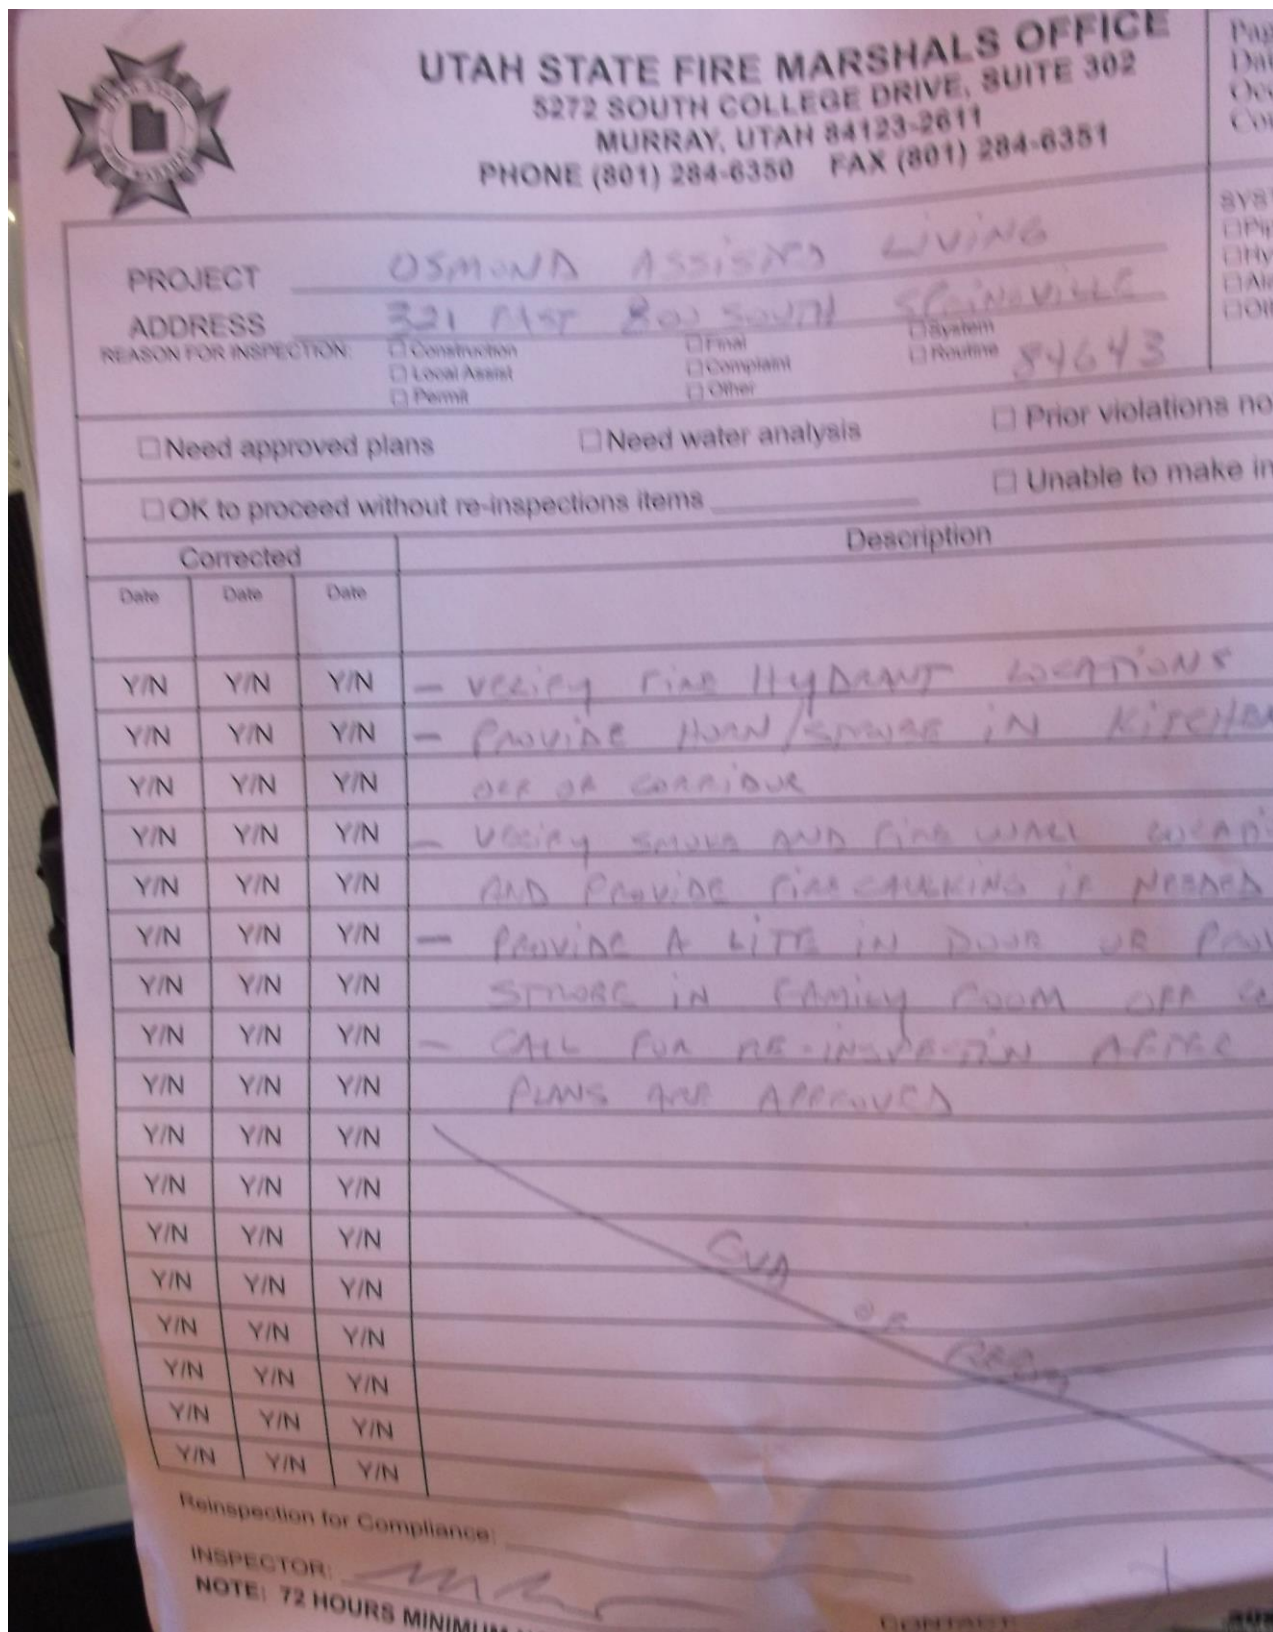 UTAH STATE FIRE MARSHALS OFFICE
5272 SOUTH COLLEGE DRIVE, SUITE 302
MURRAY, UTAH 84123-2611
PHONE (801) 284-6350 FAX (801) 284-6351
PROJECT OSMOND ASSISTED LIVING
ADDRESS 321 EAST 800 SOUTH SPRINGVILLE
REASON FOR INSPECTION: ☐ Construction ☐ Final ☐ System
☐ Local Assist ☐ Complaint ☐ Routine 84643
☐ Permit ☐ Other
☐ Need approved plans ☐ Need water analysis ☐ Prior violations no
☐ OK to proceed without re-inspections items ☐ Unable to make in
Corrected Description
Date Date Date
Y/N Y/N Y/N - VERIFY FIRE HYDRANT LOCATIONS
Y/N Y/N Y/N - PROVIDE HORN/STROBE IN KITCHEN
Y/N Y/N Y/N OFF OF CORRIDOR
Y/N Y/N Y/N - VERIFY SMOKE AND FIRE WALL
Y/N Y/N Y/N AND PROVIDE FIRE CAULKING IF NEEDED
Y/N Y/N Y/N - PROVIDE A LITE IN DOOR OR
Y/N Y/N Y/N STROBE IN FAMILY ROOM OFF
Y/N Y/N Y/N - CALL FOR RE-INSPECTION AFTER
Y/N Y/N Y/N PLANS ARE APPROVED
Y/N Y/N Y/N
Y/N Y/N Y/N
Y/N Y/N Y/N
Y/N Y/N Y/N
Y/N Y/N Y/N OF
Y/N Y/N Y/N
Y/N Y/N Y/N
Y/N Y/N Y/N
Reinspection for Compliance:
INSPECTOR:
NOTE: 72 HOURS MINIMUM
CONTACT: